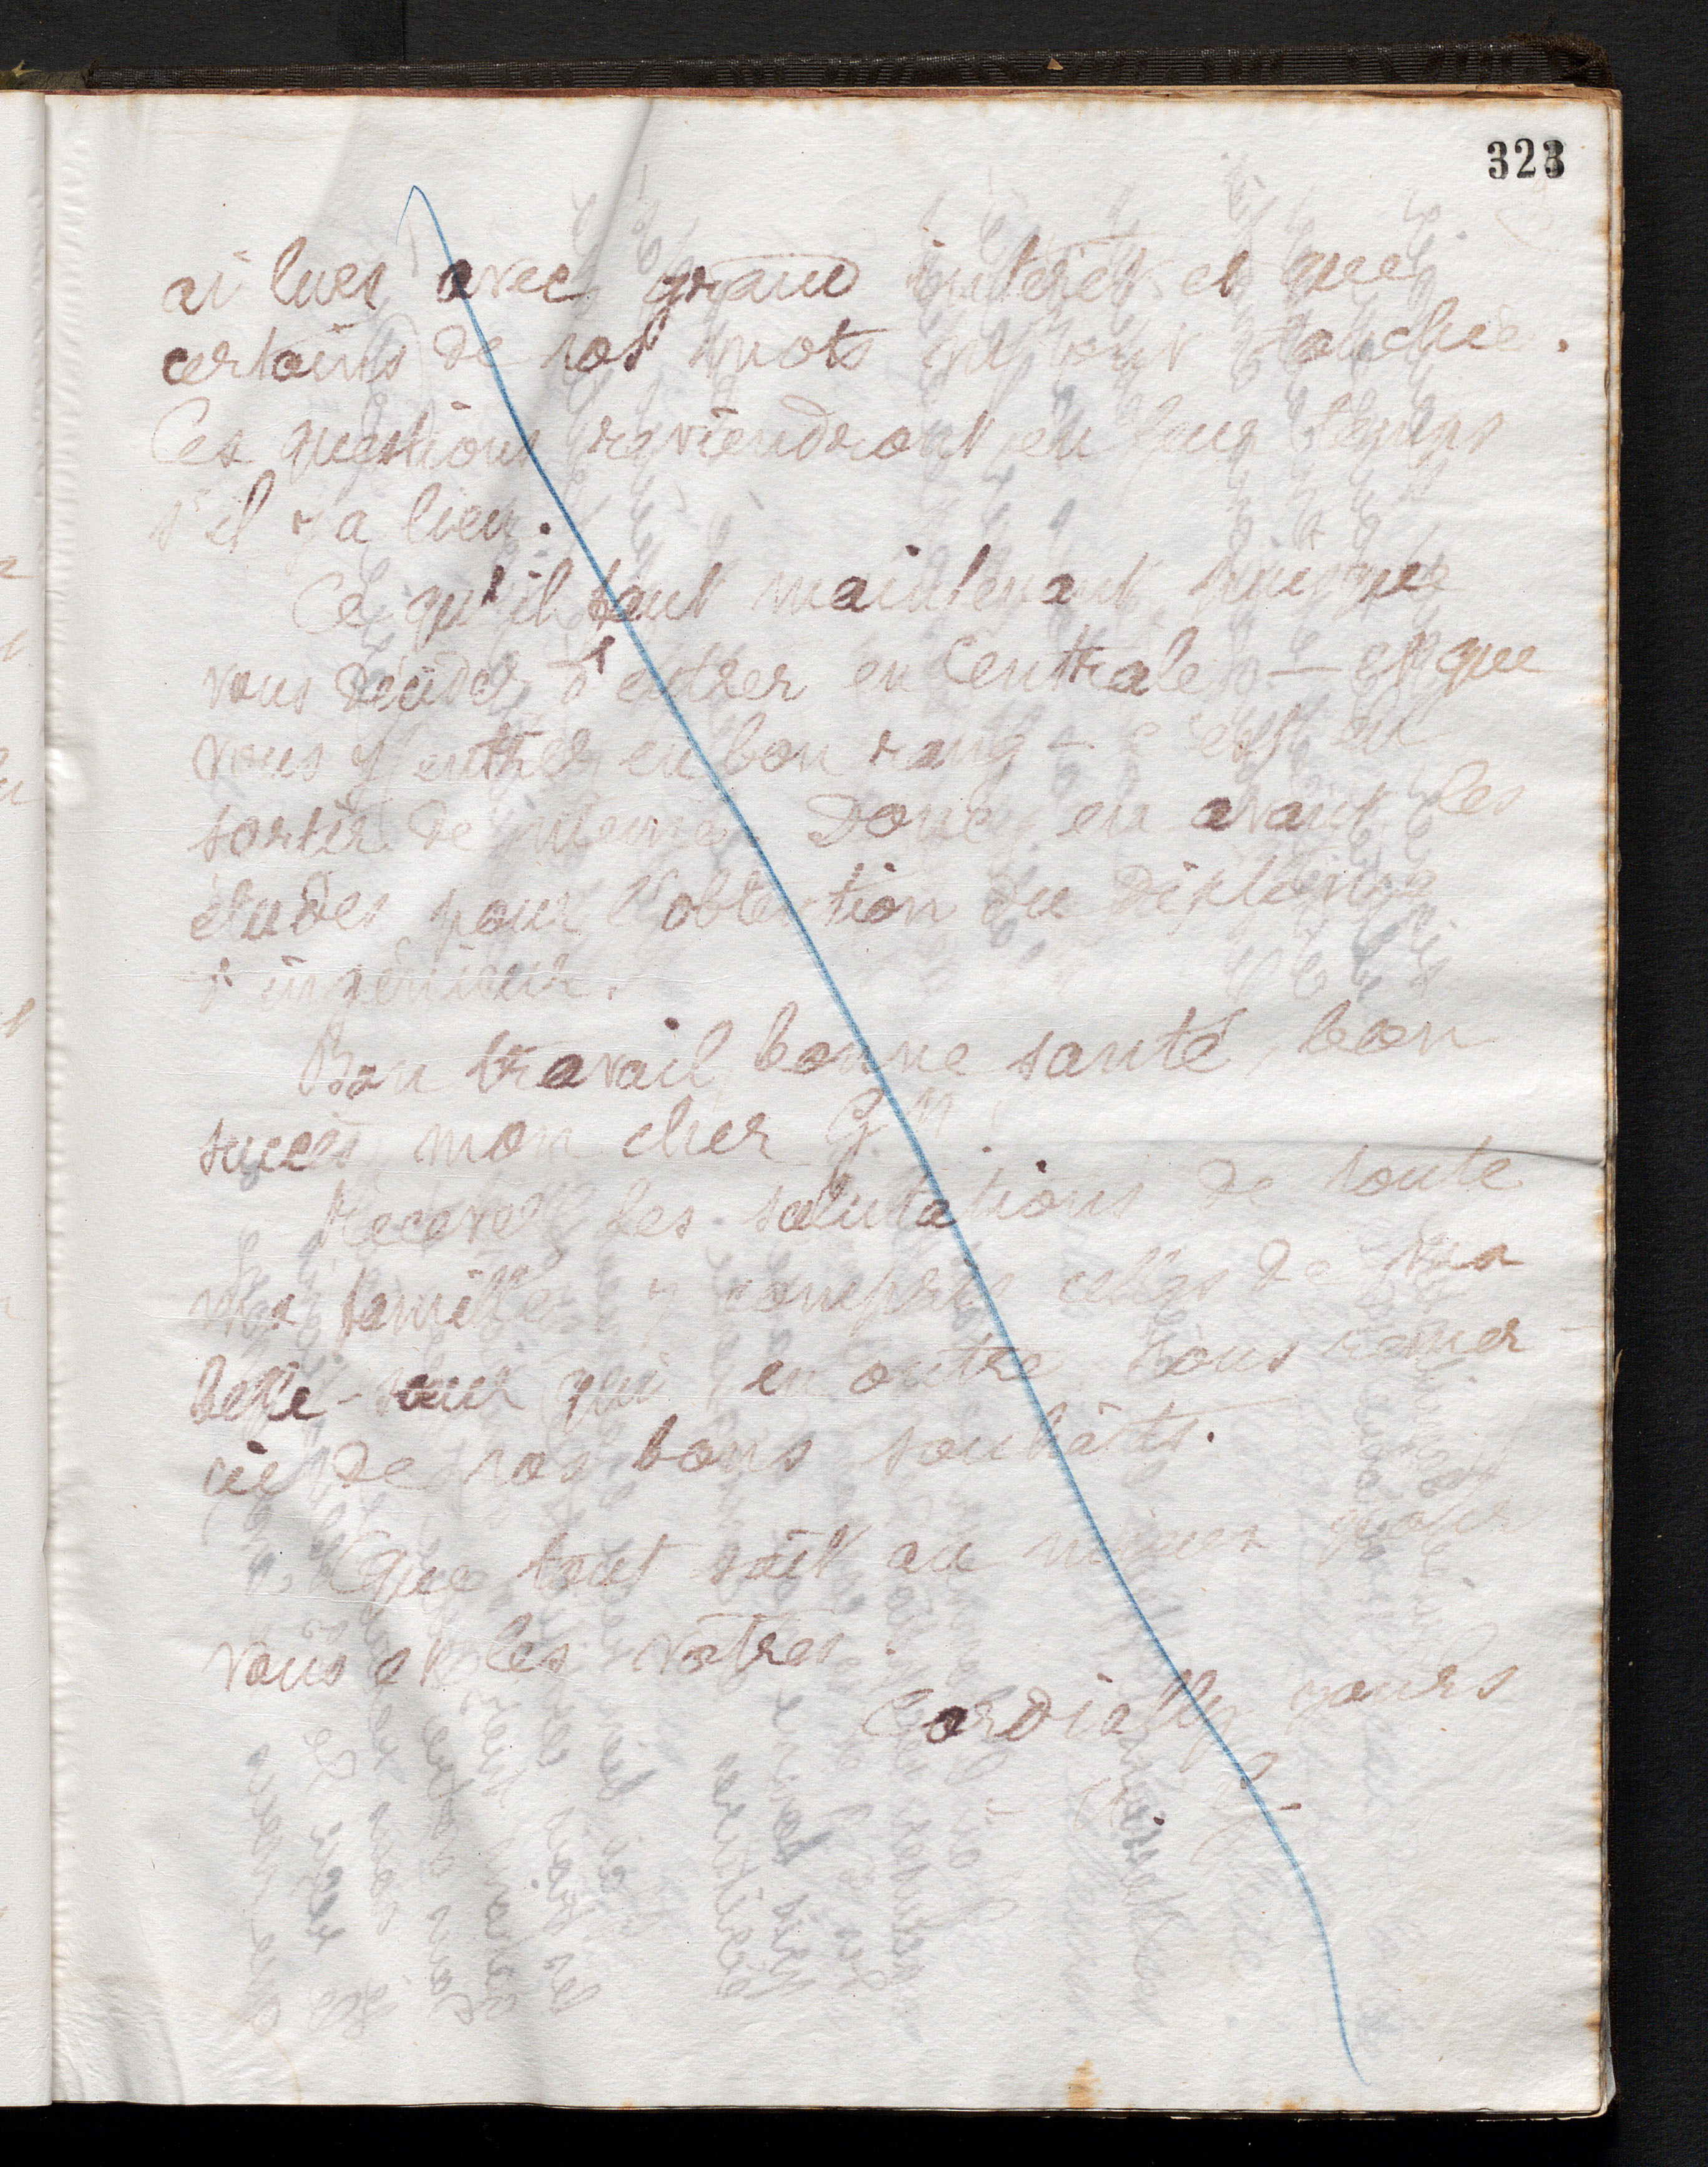 323
ai lues avec grand intérêt et que
certains de vos mots m'ont touché.
Ces questions reviendront en leur temps
s'il y a lieu.
Ce qu'il faut maintenant, puisque
vous décidez d'entrer en Centrale — et que
vous y entrez en bon rang — c'est en
sortir de même. Donc, en avant les
études pour l'obtention du diplôme
d'ingénieur.
Bon travail, bonne santé, bon
succès, mon cher
Recevez les salutations de toute
ma famille, y compris celles de ma
belle-sœur qui, en outre, vous remer-
cie de vos bons souhaits.
Que tout soit au mieux pour
vous et les vôtres.
Cordially yours